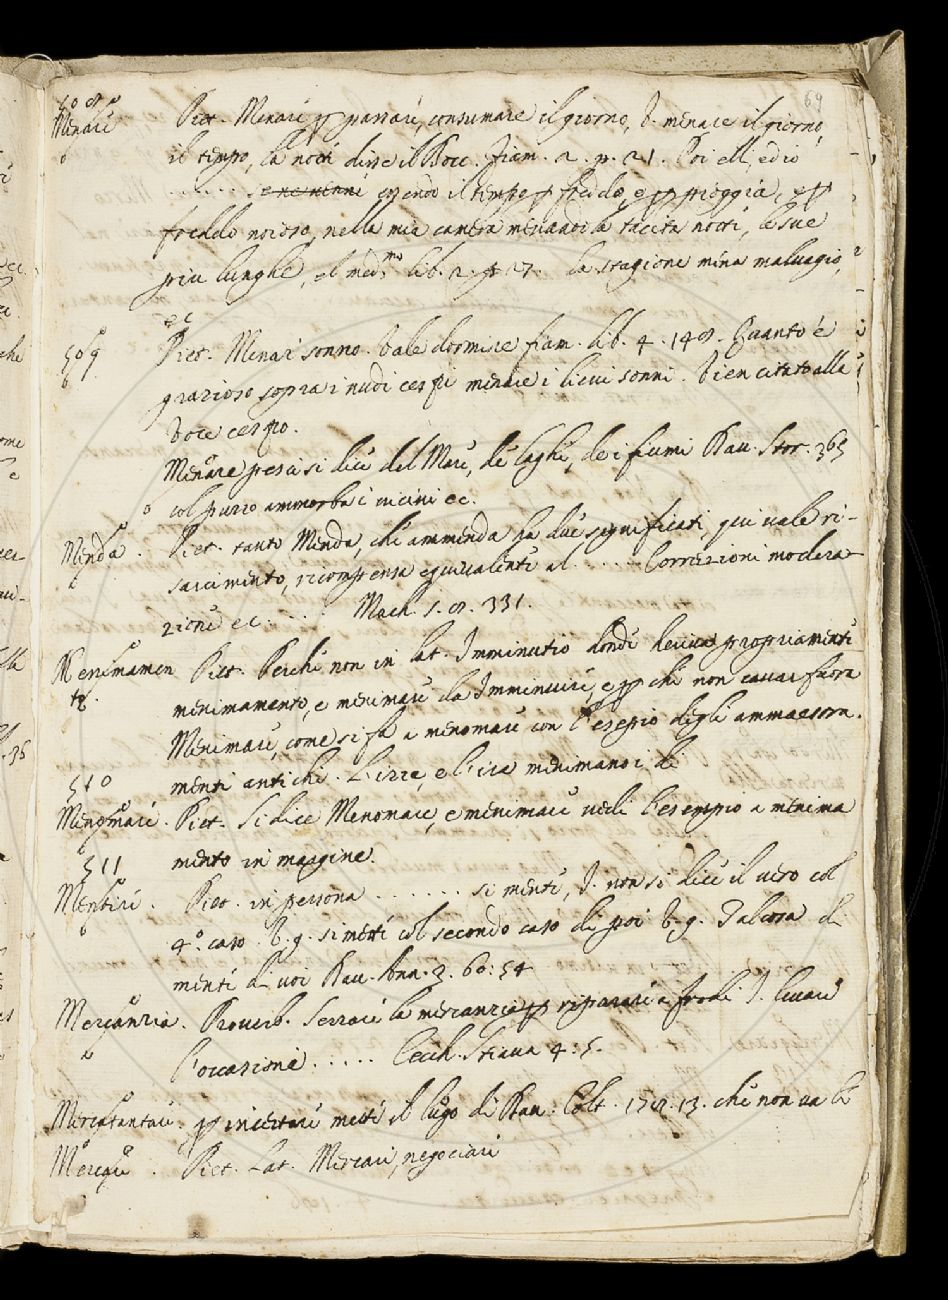 69
508
Menare Piet. Menare p passare, consumare il giorno, V. menare il giorno,
il tempo, la notte disse il Bocc. Fiam. 2. p. 21. Poi ell, ed io
....... essendo il tempo p freddo, e p pioggia, e p
freddo noioso, nella mia camera menando la tacita notte, le sue
piu lunghe, el med.mo lib. 2. p. 27. la stagione mena malvagio,
ec
509 Piet. Menar sonno. Vale dormire fiam. lib. 4. 148. Quanto è
grazioso sopra i nudi cespi menare i lievi sonni. Vien citato alla
voce cespo.
Menare pesci si dice del Mare, de laghi, de i fiumi Dav. Stor. 365
col puzzo ammorba i vicini ec.
Menda. Piet. tanto Menda, che ammenda ha due significati, qui vale ri-
sarcimento, ricompensa equivalente al ..... Correzioni modera
zione ec. ... Mach. 1. 8. 331.
Menimamen Piet. Perche non in lat. Imminutio londe deriva propriamente
to. menimamento, e menimare da Imminuire, e p che non cavar fuora
Menimare, come si fa a menomare con l'esempio degli ammaestra.
menti antichi. L'ezze, e l'ira menimano i dì
510
Menomare. Piet. Si dice Menomare, e menimare vedi l'esempio a menima
mento in margine.
511
Mentire. Piet. in persona ...... si mente, V. non si dice il vero col
4.o caso. V.g. si mente col secondo caso di poi V.g. Talora di
menti di voi Dav. Ann. 3. 60. 54
Mercanzia. Proverb. Serrare la mercanzia p riparare a frode V. levare
l'occasione ..... Cecch. Stiava 4. 5.
Mercatantare. p incettare metti il luogo di Dav. Colt. 178. 13. che non va lì
Mercare. Piet. Lat. Mercari, negociari